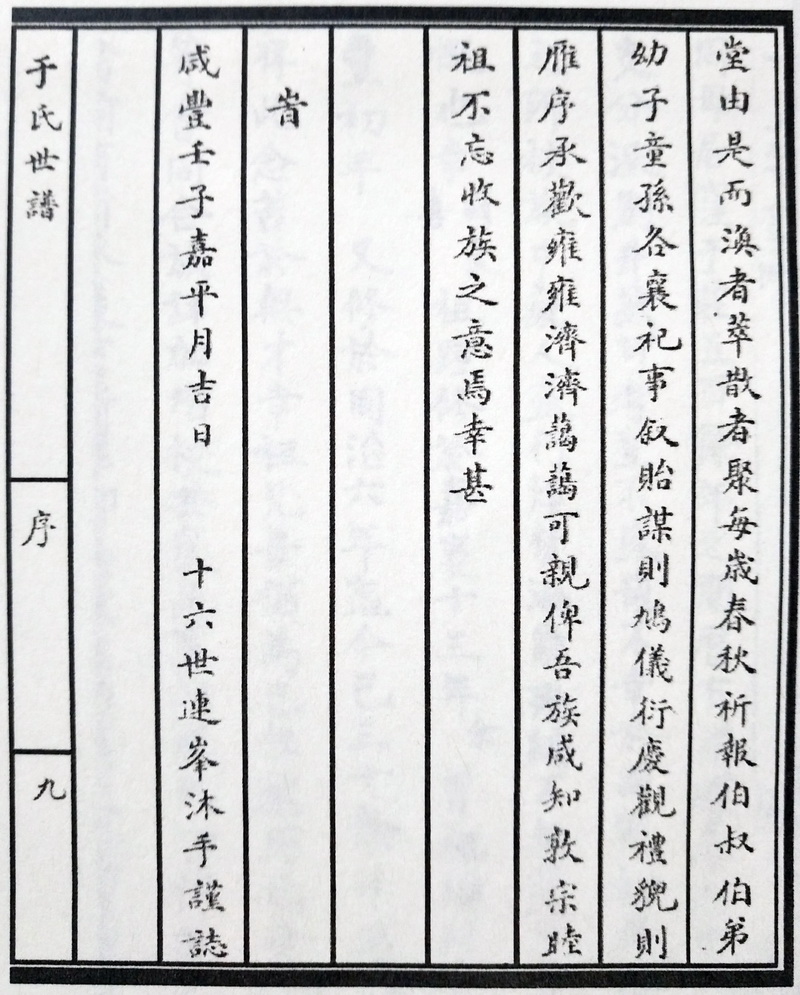 堂由是而渙者萃散者聚每歲春秋祈報伯叔伯弟
幼子童孫各襄祀事敘貽謀則鳩儀衍慶觀禮貌則
雁序承歡雍雍濟濟藹藹可親俾吾族咸知敦宗睦
祖不忘收族之意焉幸甚
旹
咸豐壬子嘉平月吉日 十六世連峯沐手謹誌
于氏世譜
序
九